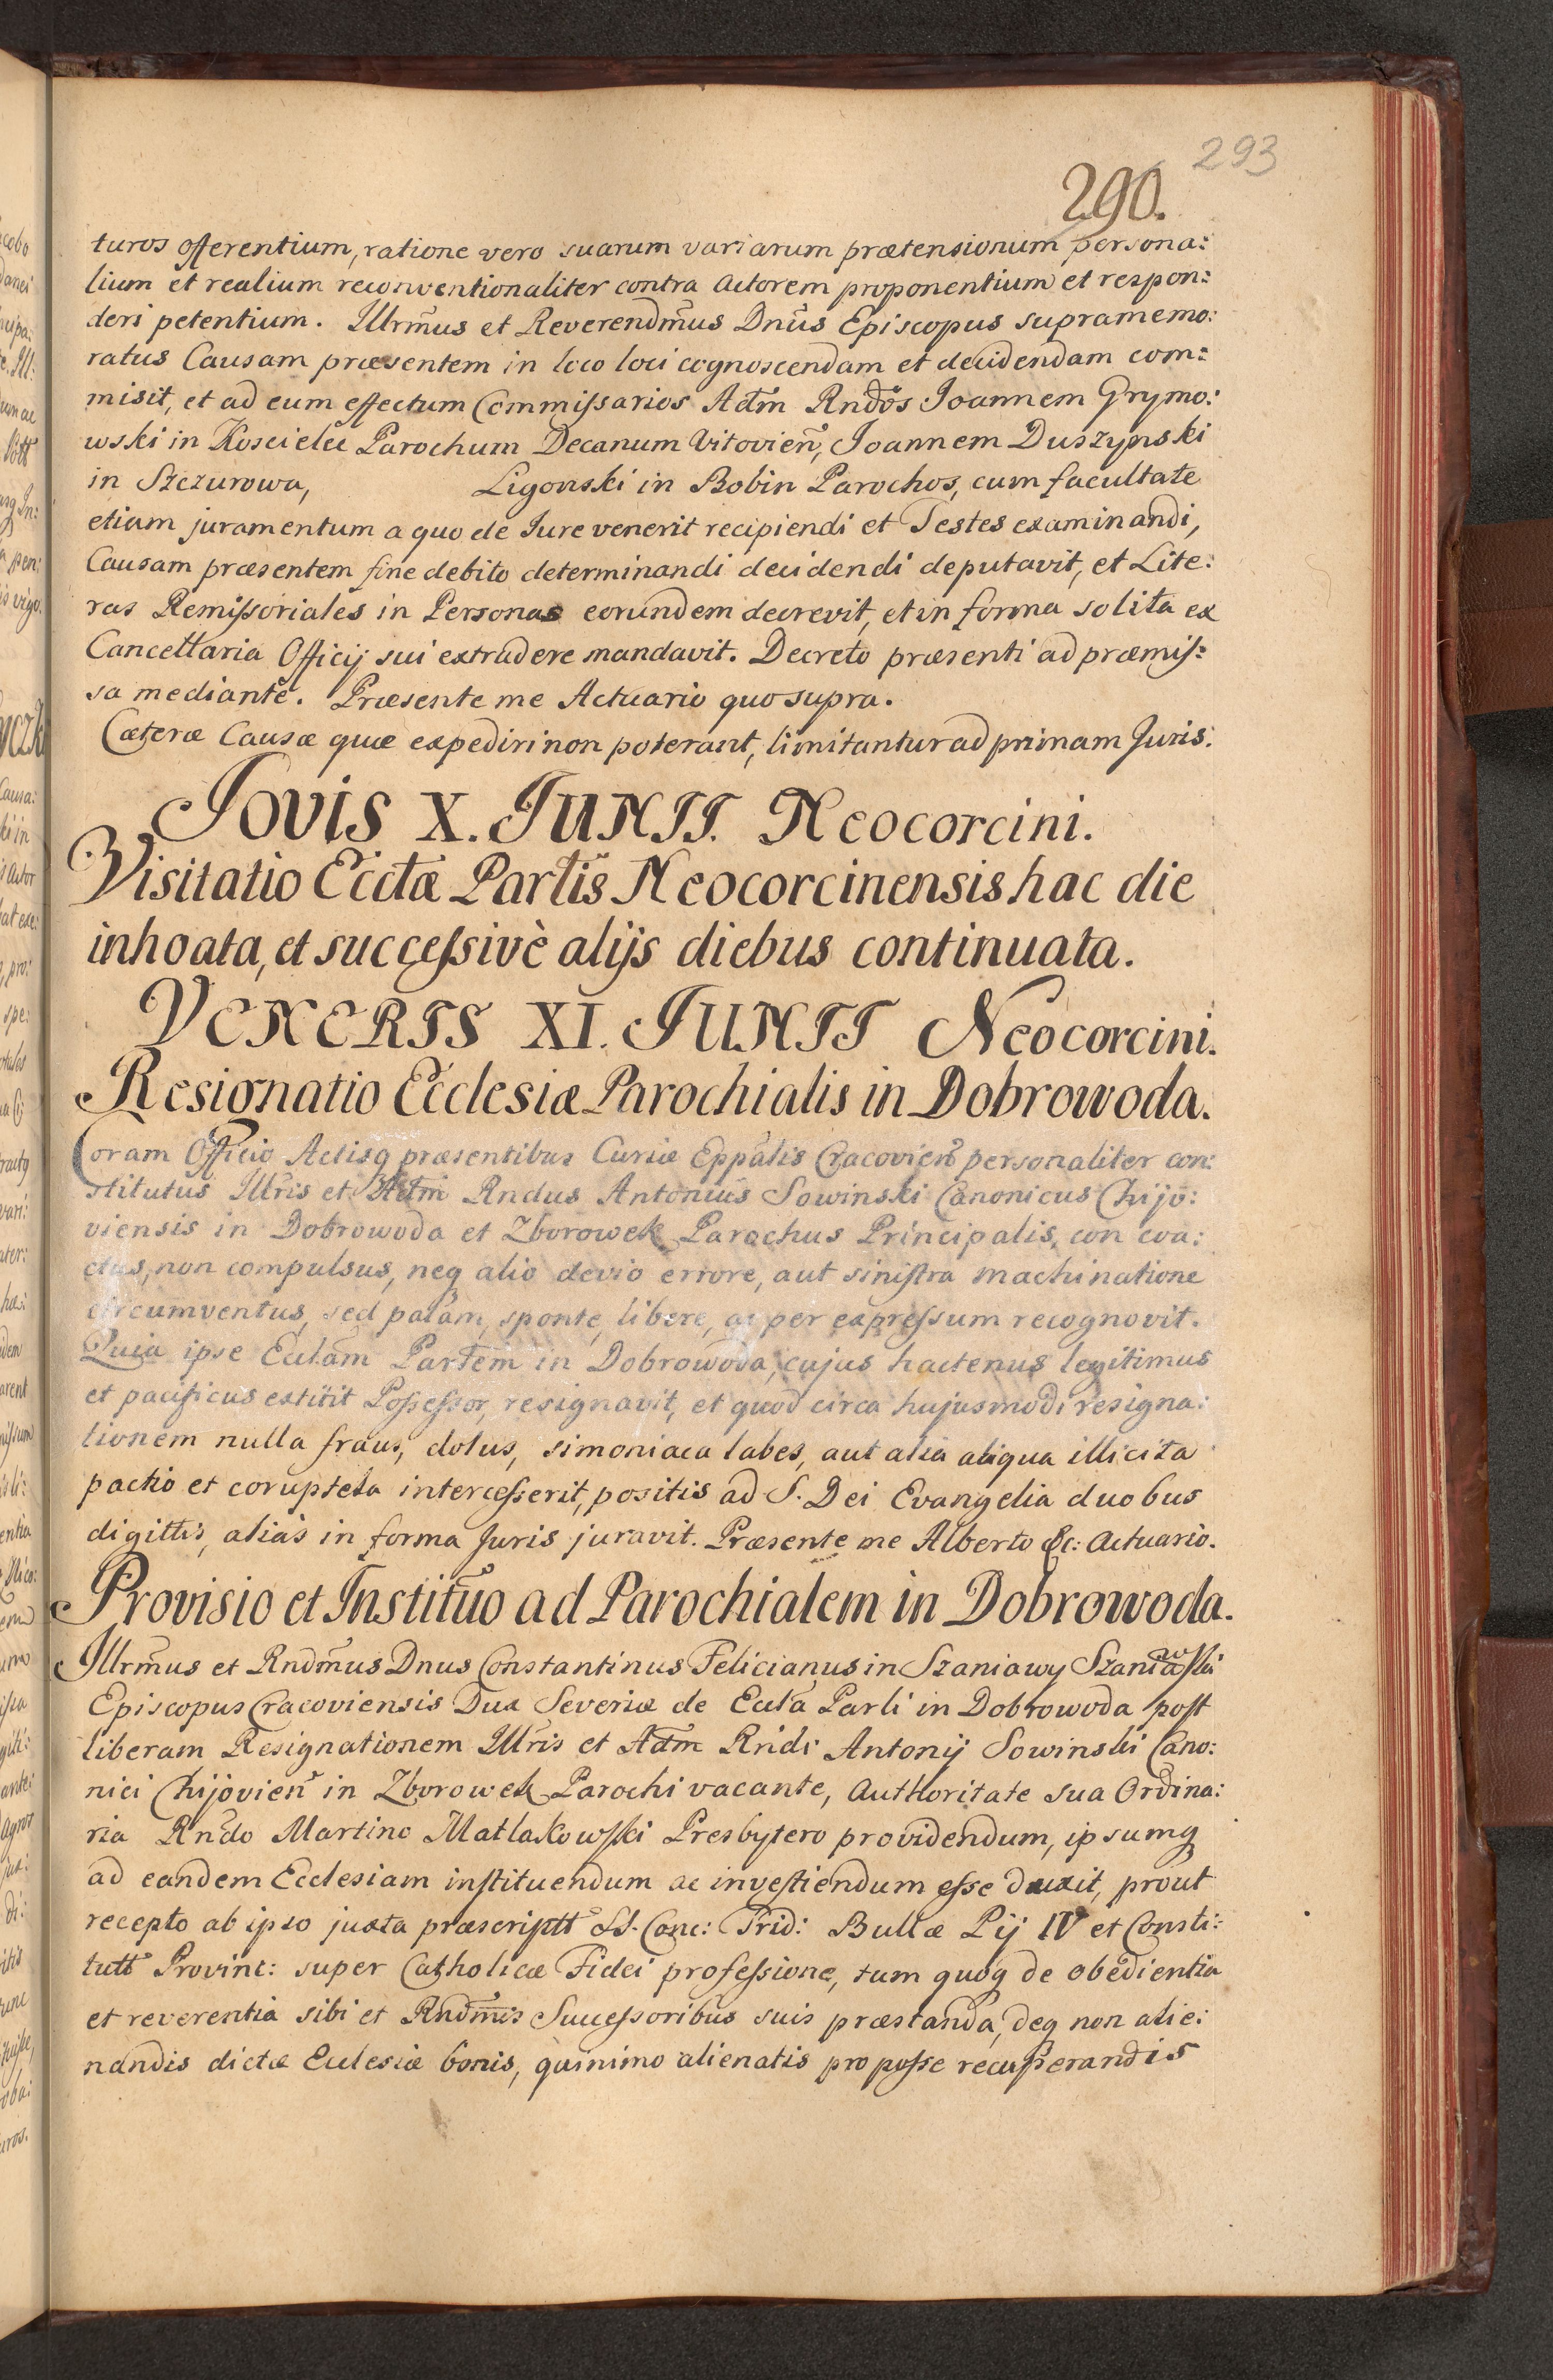 293
290.
turos offerentium, ratione vero suarum variarum prætensionum persona:
lium et realium reconventionaliter contra Actorem proponentium et respon:
deri petentium. Illrm̃us et Reverendm̃us Dnũs Episcopus supramemo:
ratus Causam præsentem in loco loci cognoscendam et decidendam com:
misit, et ad eum effectum Commissarios Adm̃ Rndõs Joannem Grymo:
wski in Koscielec Parochum Decanum Vitovien̄, Joannem Duszynski
in Szczurowa, Ligonski in Bobin Parochos, cum facultate
etiam juramentum a quo de Jure venerit recipiendi et Testes examinandi,
Causam præsentem fine debito determinandi decidendi deputavit, et Lite:
ras Remissoriales in Personas eorundem decrevit, et in forma solita ex
Cancellaria Officij sui extradere mandavit. Decreto præsenti ad præmis:
sa mediante. Præsente me Actuario quo supra.
Cæteræ Causæ quæ expediri non poterant, limitantur ad primam Juris.
Jovis X. JUNII. Neocorcini.
Visitatio Ecctæ Partis Neocorcinensis hac die
inhoata, et successivè alijs diebus continuata.
VENERIS XI. JUNII Neocorcini.
Resignatio Ecclesiæ Parochialis in Dobrowoda.
Coram Officio Actisq præsentibus Curiæ Eppãlis Cracovien̄ personaliter con:
stitutus Illris et Adm̃ Rndus Antonius Sowinski Canonicus Chijo:
viensis in Dobrowoda et Zborowek Parochus Principalis, con coa:
ctus, non compulsus, neq alio devio errore, aut sinistra machinatione
circumventus, sed palam, sponte, libere, ac per expressum recognovit.
Quia ipse Eccłam Partem in Dobrowoda, cujus hactenus legitimus
et pacificus extitit Possessor, resignavit, et quod circa hujusmodi resigna:
tionem nulla fraus, dolus, simoniaca labes, aut alia aliqua illicita
pactio et coruptela intercesserit, positis ad S. Dei Evangelia duobus
digittis, alias in forma Juris juravit. Præsente me Alberto &c: Actuario.
Provisio et Institũo ad Parochialem in Dobrowoda.
Illrm̃us et Rndm̃us Dnus Constantinus Felicianus in Szaniawy Szaniawski
Episcopus Cracoviensis Dux Severiæ de Eccła Parłi in Dobrowoda post
liberam Resignationem Illris et Adm̃ Rndi Antonij Sowinski Cano:
nici Chijovien̄ in Zborowek Parochi vacante, Authoritate sua Ordina:
ria Rndo Martino Matlakowski Presbytero providendum, ipsumq
ad eandem Ecclesiam instituendum ac investiendum esse duxit, prout
recepto ab ipso juxta præscriptt SS. Conc: Trid: Bullæ Pij IV et Consti:
tutt Provinc: super Catholicæ Fidei professione, tum quoq de obedientia
et reverentia sibi et Rndm̃is Successoribus suis præstanda, deq non alie:
nandis dictæ Ecclesiæ bonis, quinimo alienatis pro posse recuperandis